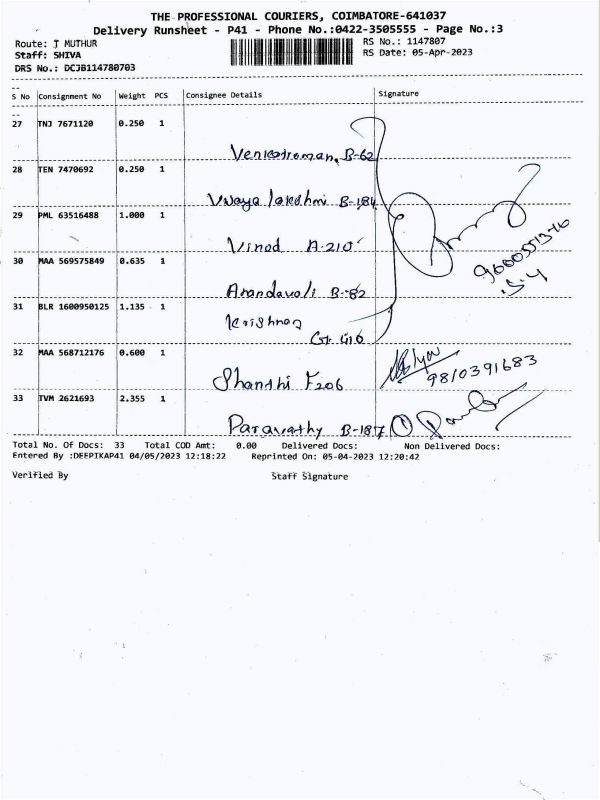 THE PROFESSIONAL COURIERS, COIMBATORE-641037
Delivery Runsheet - P41 - Phone No.:0422-3505555 - Page No.:3
Route: J MUTHUR
RS No.: 1147807
Staff: SHIVA
RS Date: 05-Apr-2023
DRS No.: DCJB114780703
S No Consignment No Weight PCS Consignee Details Signature
27 TNJ 7671120 0.250 1
Venkatraman, B-62
28 TEN 7470692 0.250 1
Vijaya lakshmi B-184
29 PML 63516488 1.000 1
Vinod A-210
30 MAA 569575849 0.635 1
Anandavali B-82
31 BLR 1600950125 1.135 1
Krishnan
G1-416
32 MAA 568712176 0.600 1
Shanthi F206
9810391683
33 TVM 2621693 2.355 1
Paravathy B-187
Total No. Of Docs: 33 Total COD Amt: 0.00 Delivered Docs: Non Delivered Docs:
Entered By :DEEPIKAP41 04/05/2023 12:18:22 Reprinted On: 05-04-2023 12:20:42
Verified By Staff Signature